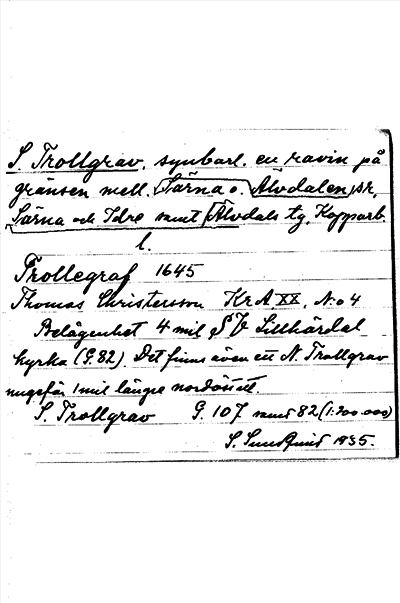 S. Trollgrav, synbarl. en ravin på
gränsen mell. Särna o. Älvdalen, sr,
Särna och Idre samt Älvdals tg, Kopparb.
l.
Trollegraf 1645
Thomas Christersson KrA XX, No 4
Belägenhet 4 mil SV Lillhärdal
kyrka (G. 82). Det finns även ett N. Trollgrav
ungefär 1 mil längre nordöstl.
S. Trollgrav G. 107 samt 82 (1:200.000)
S. Sundquist 1935.